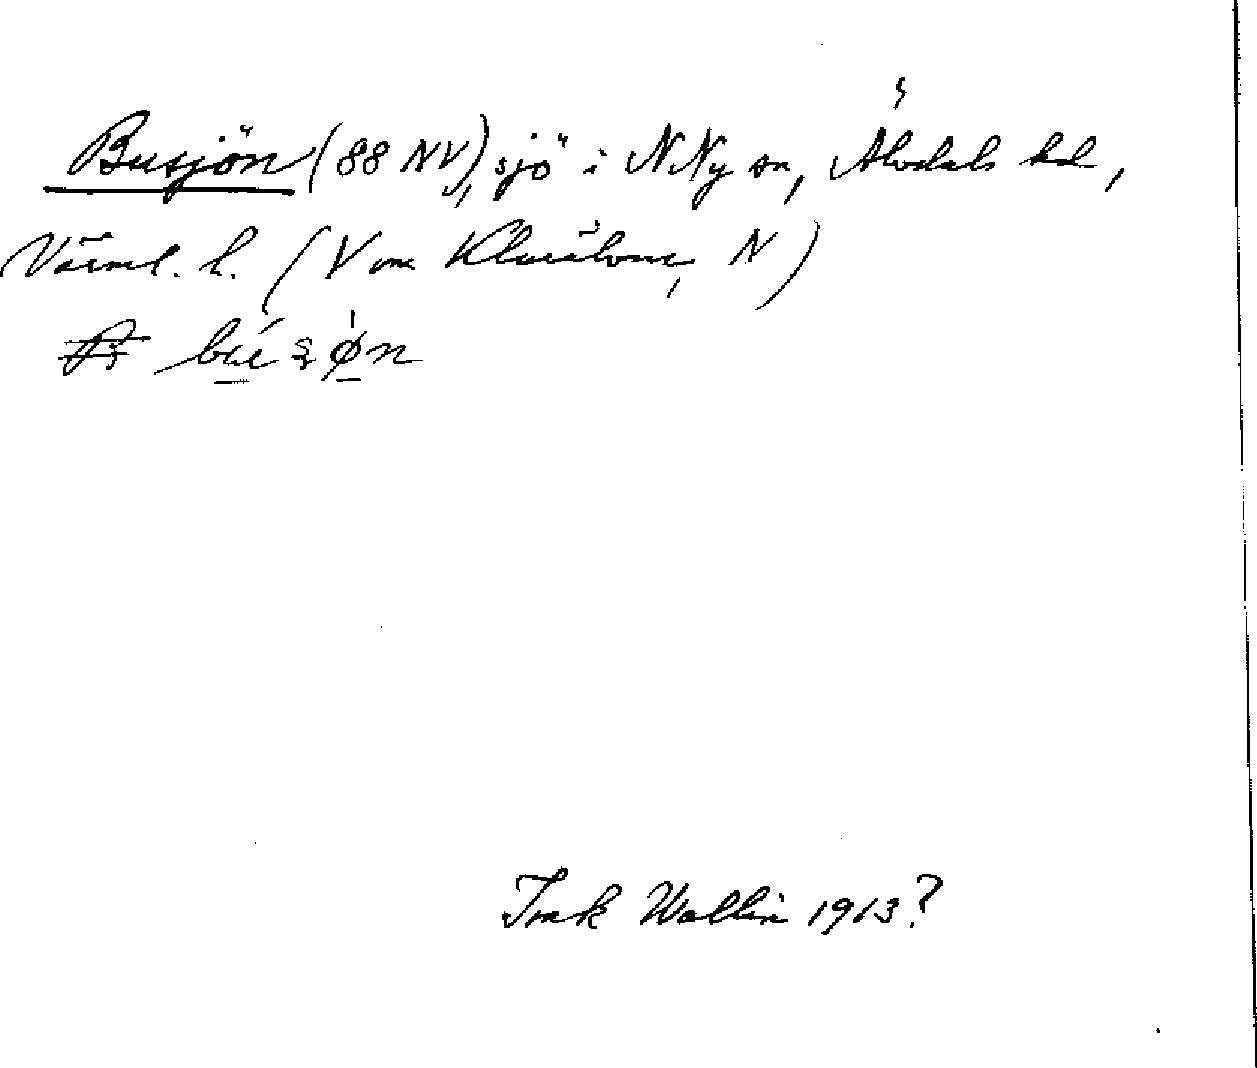 Busjön (88 NV), sjö i N Ny sn, Älvdals hd,
Värml. l. (V om Klarälven, N)
búʂø̀n
Wallin 1913?